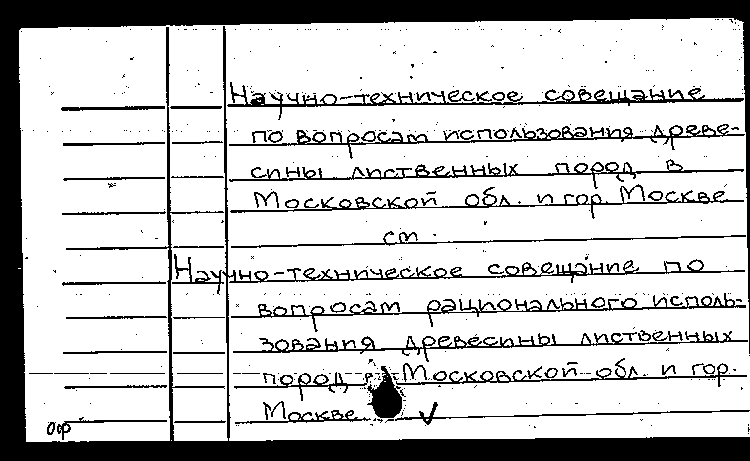 Научно-техническое совещание
по вопросам использования древе-
сины лиственных пород в
Московской обл. и гор. Москве
см.
Научно-техническое совещание по
вопросам рационального исполь-
зования древесины лиственных
пород в Московской обл. и гор.
Москве ✓